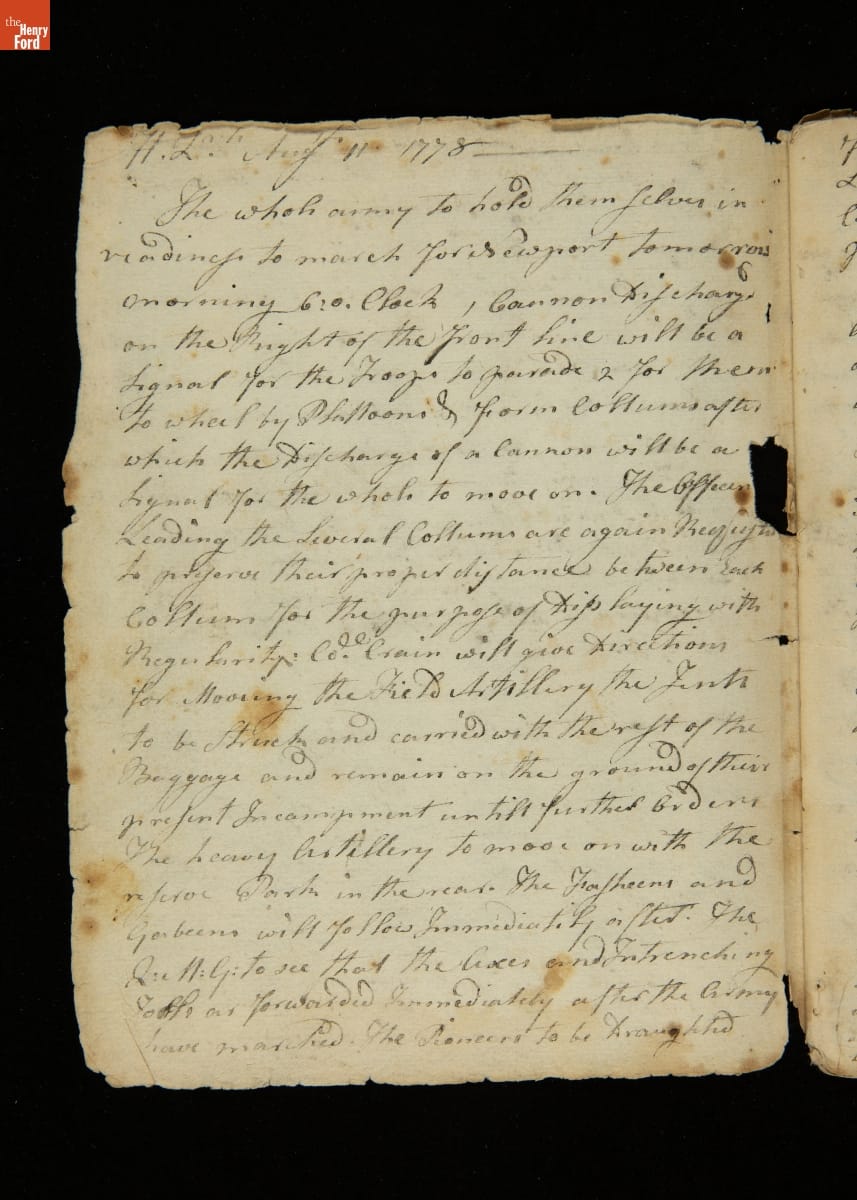 the
Henry
Ford
H. Qrts Augt 11 1778
The whole army to hold themselves in
readiness to march for Newport tomorrow
morning 6 o. Clock, Cannon Discharge
on the Right of the front line will be a
Signal for the Troops to parade 2 for them
to wheel by Plattoons & form Collums after
which the Discharge of a Cannon will be a
Signal for the whole to move on. The Officers
Leading the Several Collums are again Requested
to preserve their proper distance between Each
Collum for the purpose of Displaying with
Regularity: Col. Crain will give Directions
for Mooving the Field Artillery the Tents
to be Struck and carried with the rest of the
Baggage and remain on the ground of their
present Incampment untill further Orders
The heavy Artillery to move on with the
reserve Park in the rear. The Fasheens and
Gabeens will follow Immediatily after. The
Q: M: G: to see that the Axes and Intrenching
Tools ar forwarded Immediately after the Army
have marched. The Pioneers to be Draughted